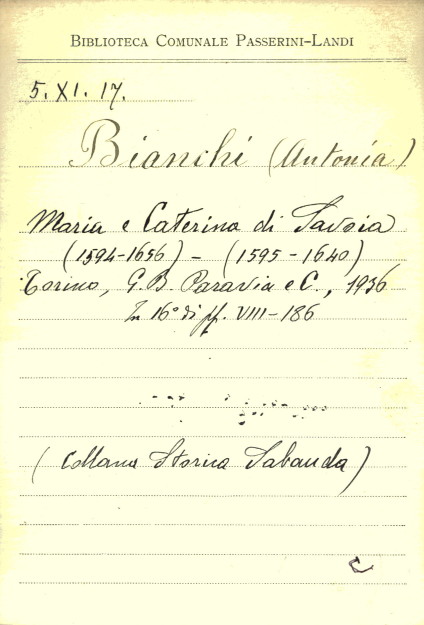 BIBLIOTECA COMUNALE PASSERINI-LANDI
5. XI. 17.
Bianchi (Antonia)
Maria e Caterina di Savoia
(1594-1656) - (1595-1640)
Torino, G. B. Paravia e C., 1936
In 16° di pp. VIII-186
(Collana Storica Sabauda)
C